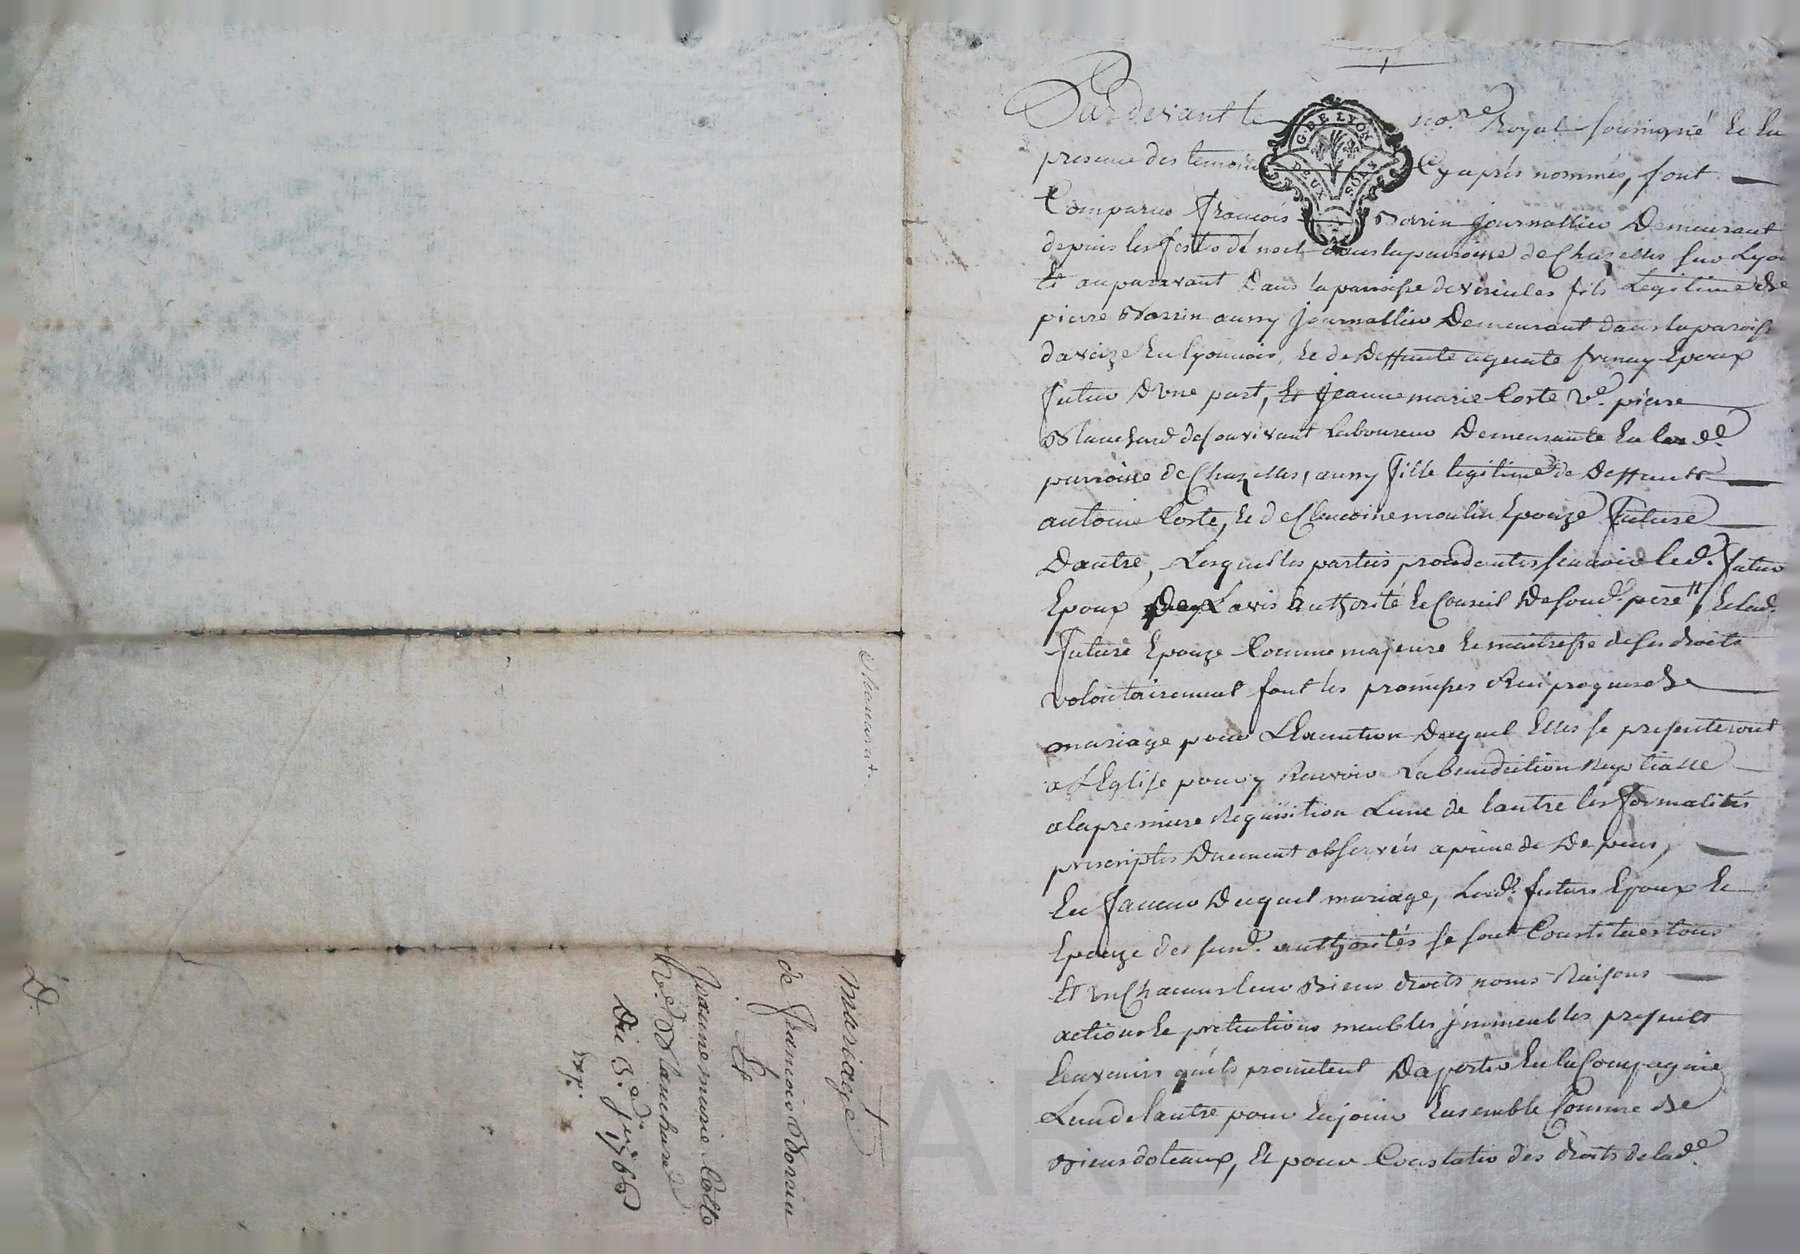 Par devant le no.re Royal soussigné Et En
presence des temoins Cy après nommés, sont
G. DE LYON
DEUX SOLS
Comparus françois Borrin journallier Demeurant
depuis les festes de noel dans la paroisse de Chazelles sur Lyon
Et auparavant Dans la paroisse de fils Legitime de
pierre Borrin aussy journallier Demeurant dans la paroisse
daveize En lyonnois, Et de Deffunte agathe Epoux
futur D'une part, Et Jeanne marie Coste v.e pierre
Blanchard de son vivant Laboureur Demeurante En lad.e
paroisse de Chazelles, aussy fille legitime de Deffunts
antoine Coste, Et de Claudine moulin Epouze future
D'autre, Lesquelles parties procedantes scavoir led. futur
Epoux De L'avis authorité Et Conseil De soud. pere, Et lad.
future Epouze Comme majeure Et maitresse de ses droits
volontairement font les promesses Reciproques de
mariage pour L'Execution Duquel Elles se presenteront
a L'Eglise pour y Recevoir La benediction Nuptialle
a la premiere Requisition L'une de l'autre les formalités
prescriptes Duement observées a peine de De pens,
En faveur Duquel mariage, Lesd. futurs Epoux Et
Epouze des susd. authorités se sont Constitués tous
Et Un Chacuns leurs Biens droits noms Raisons
actions Et pretentions meubles jmmeubles presents
Et avenirs qu'ils promettent D'aporter En la Compagnie
L'un de l'autre pour En jouir Ensemble Comme de
Biens doteaux, Et pour Constater des droits de lad.e
mariage
de françois Borrin
Et
Jeanne marie Coste
v.e Blanchard
Du 3.e 1766
Exp.